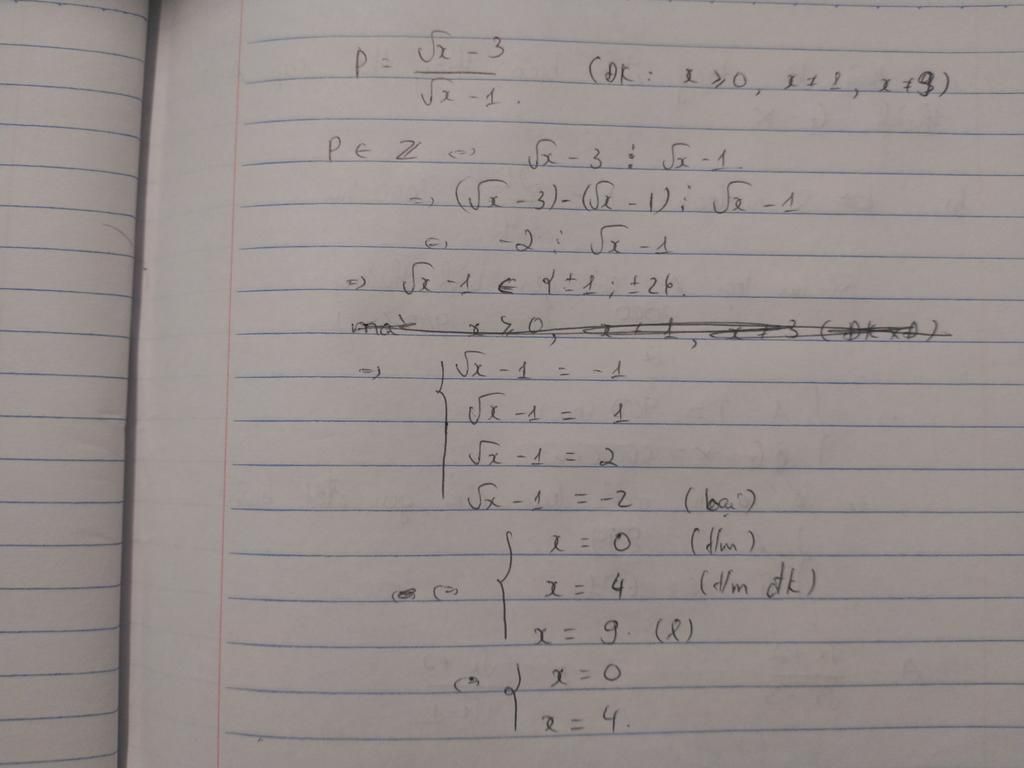 P = (√x - 3)/(√x - 1). (ĐK: x ≥ 0, x ≠ 1, x ≠ 9)
P ∈ ℤ ⇔ √x - 3 ⋮ √x - 1.
⇒ (√x - 3) - (√x - 1) ⋮ √x - 1
⇔ -2 ⋮ √x - 1
⇒ √x - 1 ∈ {±1; ±2}.
mà x ≥ 0, x ≠ 1, x ≠ 3 (ĐKXĐ)
⇒ { √x - 1 = -1
√x - 1 = 1
√x - 1 = 2
√x - 1 = -2 (loại)
⇔ { x = 0 (t/m)
x = 4 (t/m đk)
x = 9. (l)
⇔ { x = 0
x = 4.